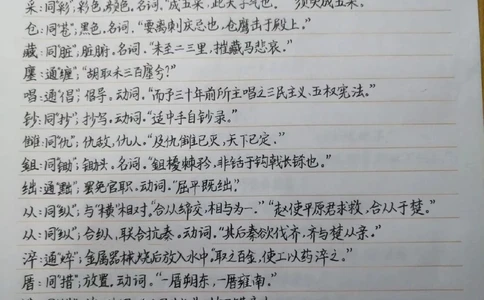 采：同"彩"，彩色，颜色，名词，"成五采，此天子气也。"
仓：同"苍"，黑色，名词，"要离刺庆忌也，仓鹰击于殿上。"
藏：同"脏"，脏腑。名词，"未至二三里，摧藏马悲哀。"
廛：通"缠"；"胡取禾三百廛兮？"
唱：通"倡"；倡导。动词。"而予三十年前所主唱之三民主义、五权宪法。"
钞：同"抄"；抄写，动词。"适中手自钞录。"
雠：同"仇"；仇敌，仇人。"及仇雠已灭，天下已定。"
鉏：同"锄"；锄头，名词。"鉏櫌棘矜，非铦于钩戟长铩也。"
绌：通"黜"；罢免官职，动词。"屈平既绌，"
从：同"纵"；与"横"相对。"合从缔交，相与为一。""赵使平原君求救，合从于楚。"
从：同"纵"；合纵，联合抗秦。动词。"其后秦欲伐齐，齐与楚从亲。"
淬：通"焠"；金属器械烧后放入水中。"取之百金，使工以药淬之。"
厝：同"措"；放置，动词。"一厝朔东，一厝雍南。"